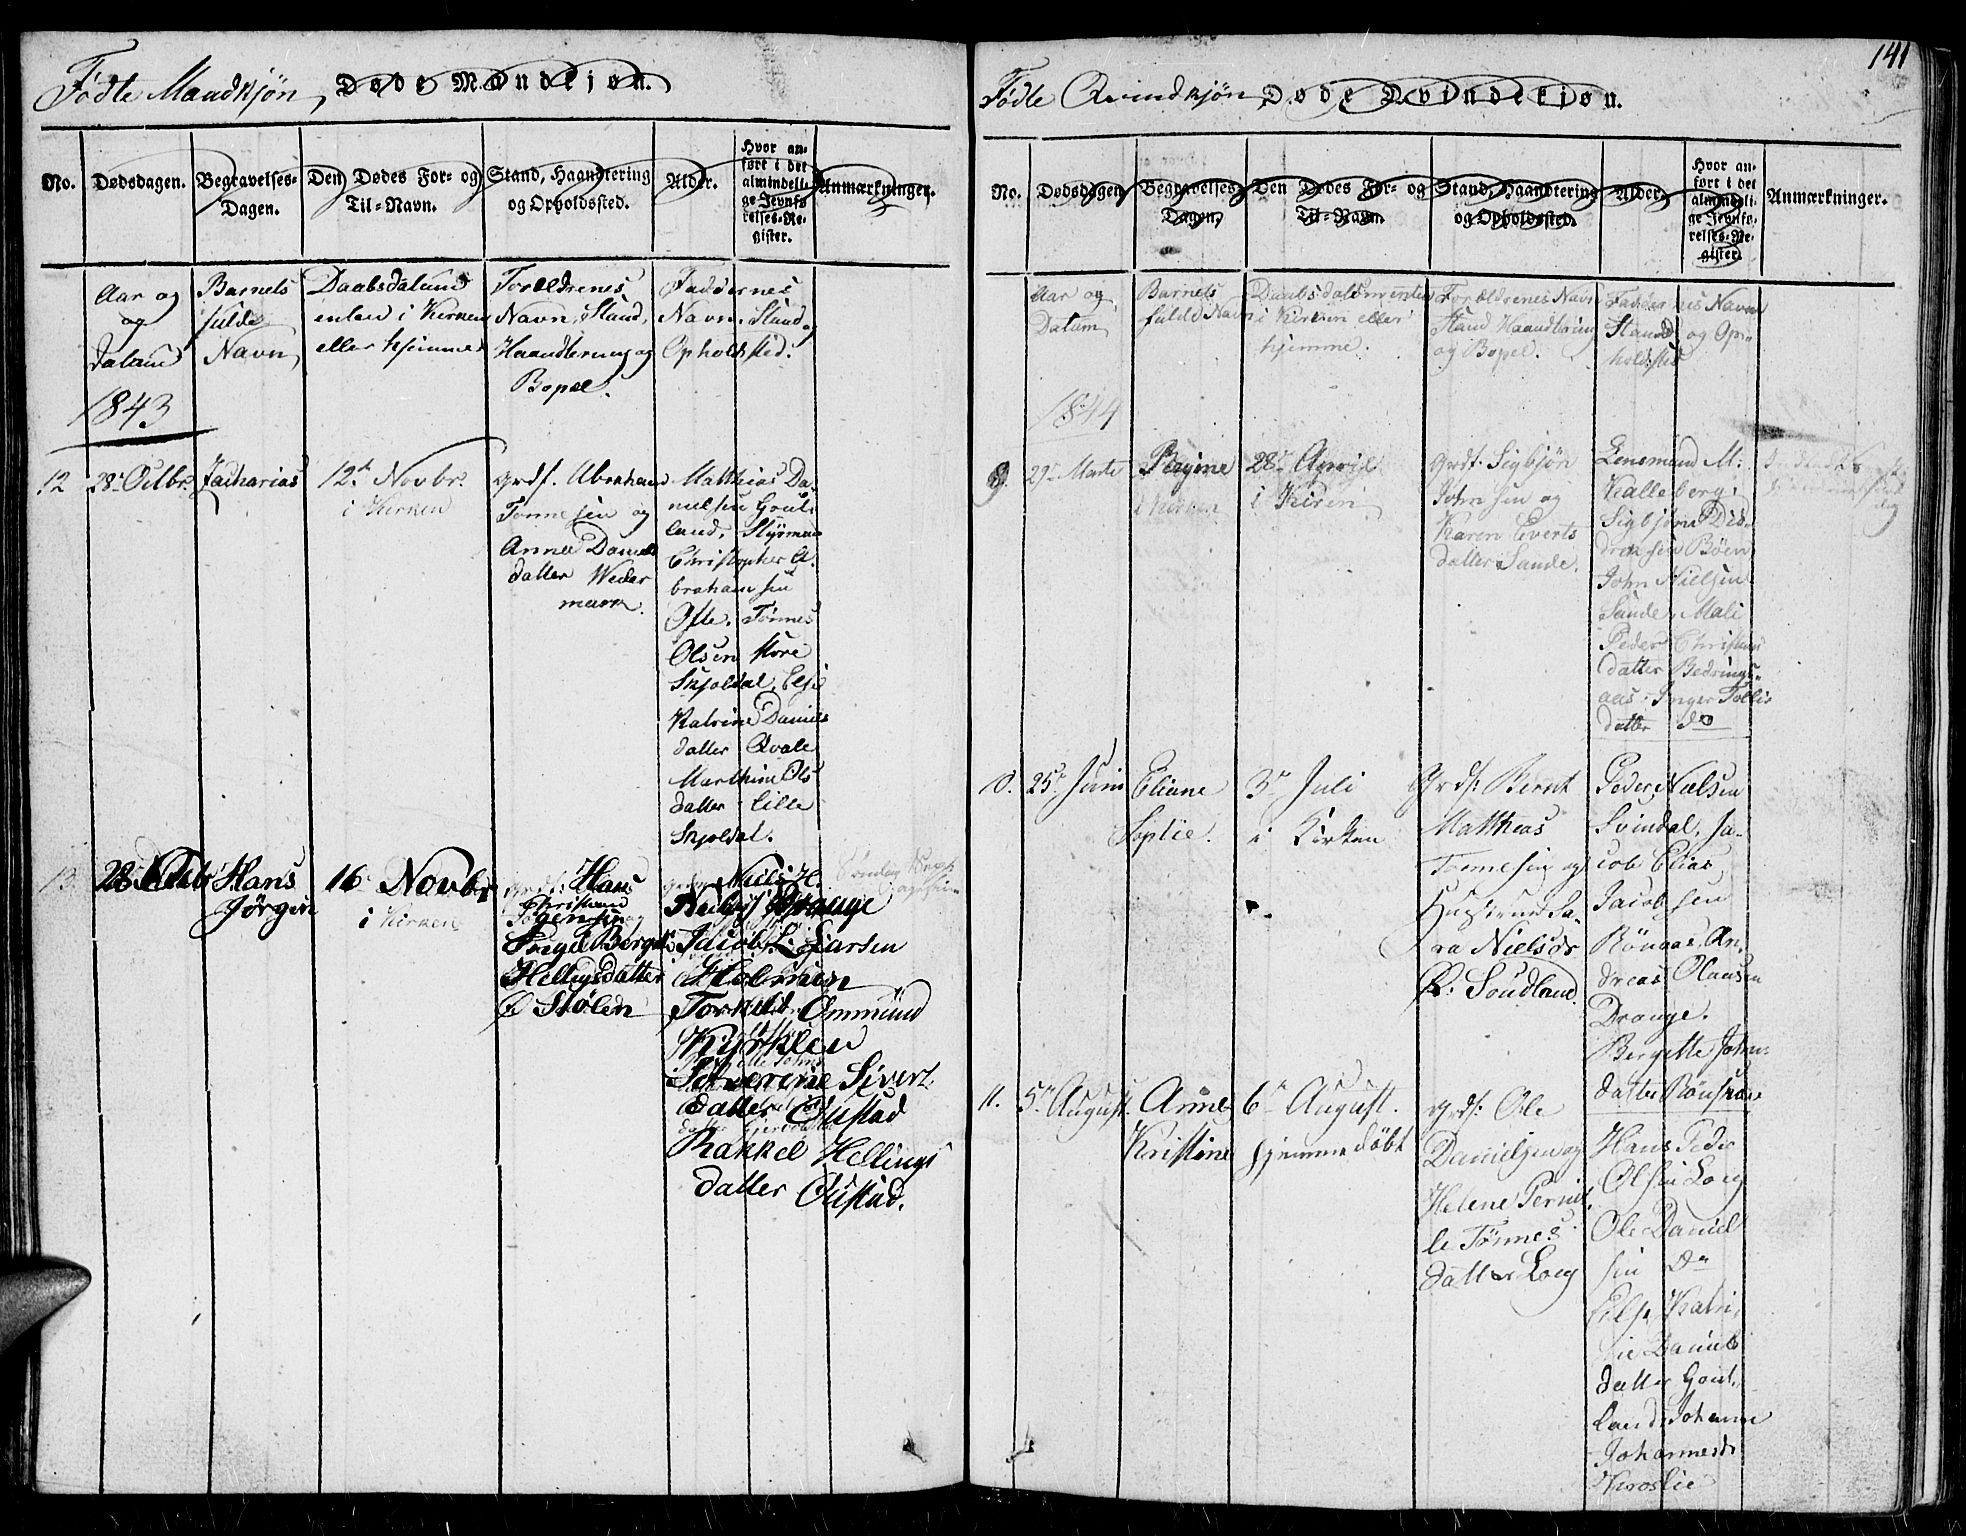 Fødte Mandkjön, Døde Mandkjøn.
No.
Dødsdagen.
Begravelses-
Dagen.
Den Dødes For- og
Til-Navn.
Stand, Haandtering
og Opholdssted.
Alder.
Hvor an-
ført i det
almindeli-
ge Jevnfø-
relses-Re-
gister.
Anmærkninger.
Aar og
og
datum
1843
Barnets
fulde
Navn
Daabsdatum
enten i Kirken
eller hjemme
Forældrenes
Navn, Stand,
Haandtering og
Bopæl.
Faddernes
Navn, Stand og
Opholdsted.
12
28. Octbr.
Zacharias
12te Novbr.
i Kirken
Grdf. Abraham
Tønnesen og
Anna Daniels
datter Weder
mark.
Matthias Da-
nielsen Goul-
land, Styrman
Christopher A-
braham sen
Ofte. Tönnes
Olsen store
Skjoldal, Else
Katrine Daniels
datter Qvale
Marthine Ols
datter Lille
Skjoldal.
13.
28. Octbr
Hans
Jörgen
16. Novbr
i Kirken
Grdf: Hans
Christian
Jörgensen og
Berge
Hellingsdatter
Stölen
Niels H.
Drange
Jacob L. Larsen
Torkild Ommund
Severine Sivert
datter Oustad
Rakkel Hellings
datter Oustad.
141
Födte Qvindkjön, Døde Qvindekjøn.
No.
Dødsdagen
Begravelses
Dagen.
Den Dødes For- og
Til-Navn.
Stand, Haandtering
og Opholdssted.
Alder.
Hvor an-
ført i det
almindeli-
ge Jevnfø-
relses-Re-
gister.
Anmærkninger.
Aar og
Datum
1844
Barnets
fulde Navn
Daabsdatum enten
i Kirken eller
hjemme.
Forældrenes Navn
Stand Haandtering
og Bopel.
Faddernes Navn
Stand og Op-
holdsted
9.
29. Marts
Regine
i Kirken
28. April
i Kirken
Grdf. Sigbjön
John sen og
Karen Everts
datter Sande.
Lensmand M:
Kalleberg,
Sigbjörn Did-
reksen Böen
John Nielsen
Sande, Mali
Peder Christens
datter Bedrings-
aas, Inger Tollis
datter do
10.
25. Juni
Eliane
Sophie.
3. Juli
i Kirken
Grdf: Bernt
Matthias
Tønnesen og
Hustrue Sa-
ra Nielsdr
P: Soudland.
Peder Nielsen
Svindal, Ja-
cob Elias
Jacobsen
Rönaas, An-
dreas Olausen
Drange.
Bergitte John-
datter Rönnaas
11.
5. August.
Anne
Kristine
6. August.
hjemmedöbt
Grdf: Ole
Danielsen og
Helene Pernil-
le Tönnes
datter Loeg
Hans Peder
Olsen Loeg
Ole Daniel
sen do
Else Katri-
ne Daniels
datter Goul-
land, Johanne
Johannesdr
Kroslie